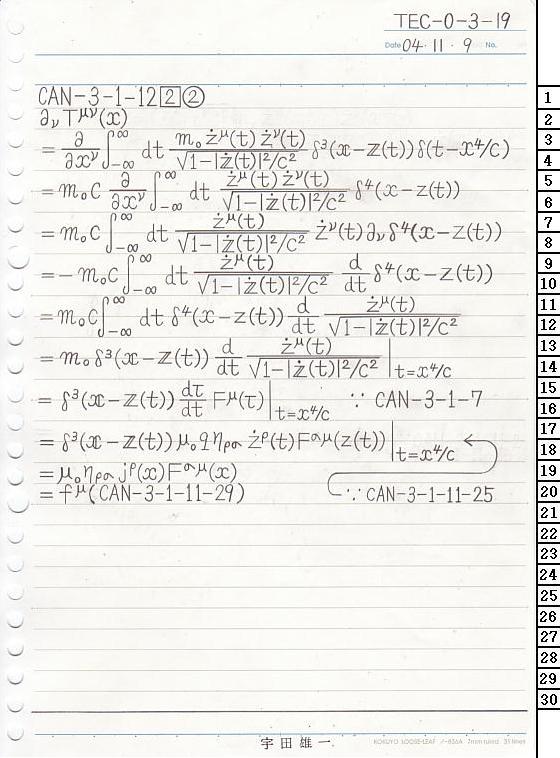 TEC-0-3-19
Date 04・11・9 No.
CAN-3-1-12[2]②
∂_ν T^{μν}(x)
= ∂/∂x^ν ∫_{-∞}^{∞} dt m₀ż^μ(t)ż^ν(t)/√(1-|ż(t)|²/c²) δ³(x-z(t))δ(t-x⁴/c)
= m₀c ∂/∂x^ν ∫_{-∞}^{∞} dt ż^μ(t)ż^ν(t)/√(1-|ż(t)|²/c²) δ⁴(x-z(t))
= m₀c ∫_{-∞}^{∞} dt ż^μ(t)/√(1-|ż(t)|²/c²) ż^ν(t)∂_νδ⁴(x-z(t))
= -m₀c ∫_{-∞}^{∞} dt ż^μ(t)/√(1-|ż(t)|²/c²) d/dt δ⁴(x-z(t))
= m₀c ∫_{-∞}^{∞} dt δ⁴(x-z(t)) d/dt ż^μ(t)/√(1-|ż(t)|²/c²)
= m₀δ³(x-z(t)) d/dt ż^μ(t)/√(1-|ż(t)|²/c²) |_{t=x⁴/c}
= δ³(x-z(t)) dτ/dt F^μ(τ) |_{t=x⁴/c} ∵ CAN-3-1-7
= δ³(x-z(t))μ₀qη_{ρσ}ż^ρ(t)F^{σμ}(z(t)) |_{t=x⁴/c} ←
= μ₀η_{ρσ}j^ρ(x)F^{σμ}(x)
= f^μ(CAN-3-1-11-29) ∵ CAN-3-1-11-25
1
2
3
4
5
6
7
8
9
10
11
12
13
14
15
16
17
18
19
20
21
22
23
24
25
26
27
28
29
30
宇田雄一
KOKUYO LOOSE-LEAF ノ-836A 7mm ruled 31 lines